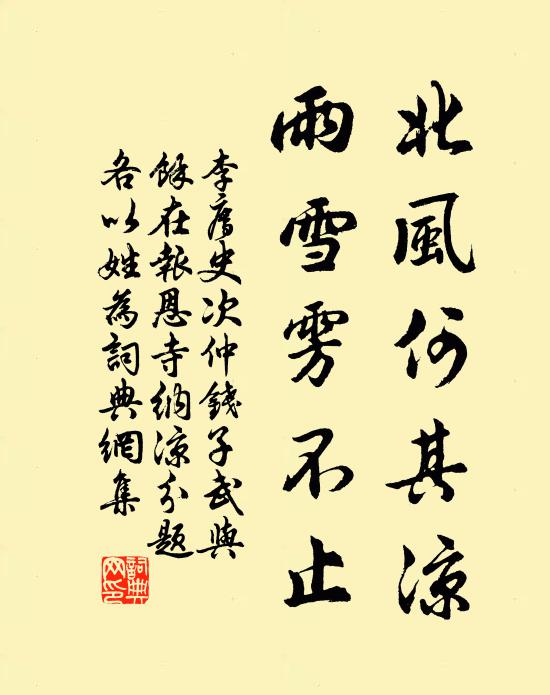 北風何其涼
雨雪雱不止
李膺史次仲錢子武與
餘在報恩寺納涼分題
各以姓為詞典網集
詞典
网印